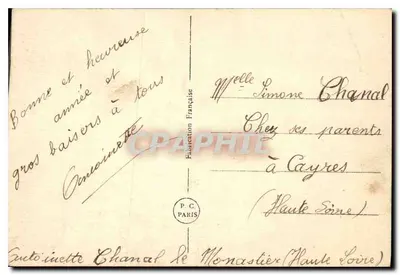 Bonne et heureuse
année et
gros baisers à tous
Antoinette
Fabrication Française
P.C.
PARIS
Melle Simone Chanal
Chez ses parents
à Cayres
(Haute Loire)
Antoinette Chanal le Monastier (Haute Loire)
CPARHIE